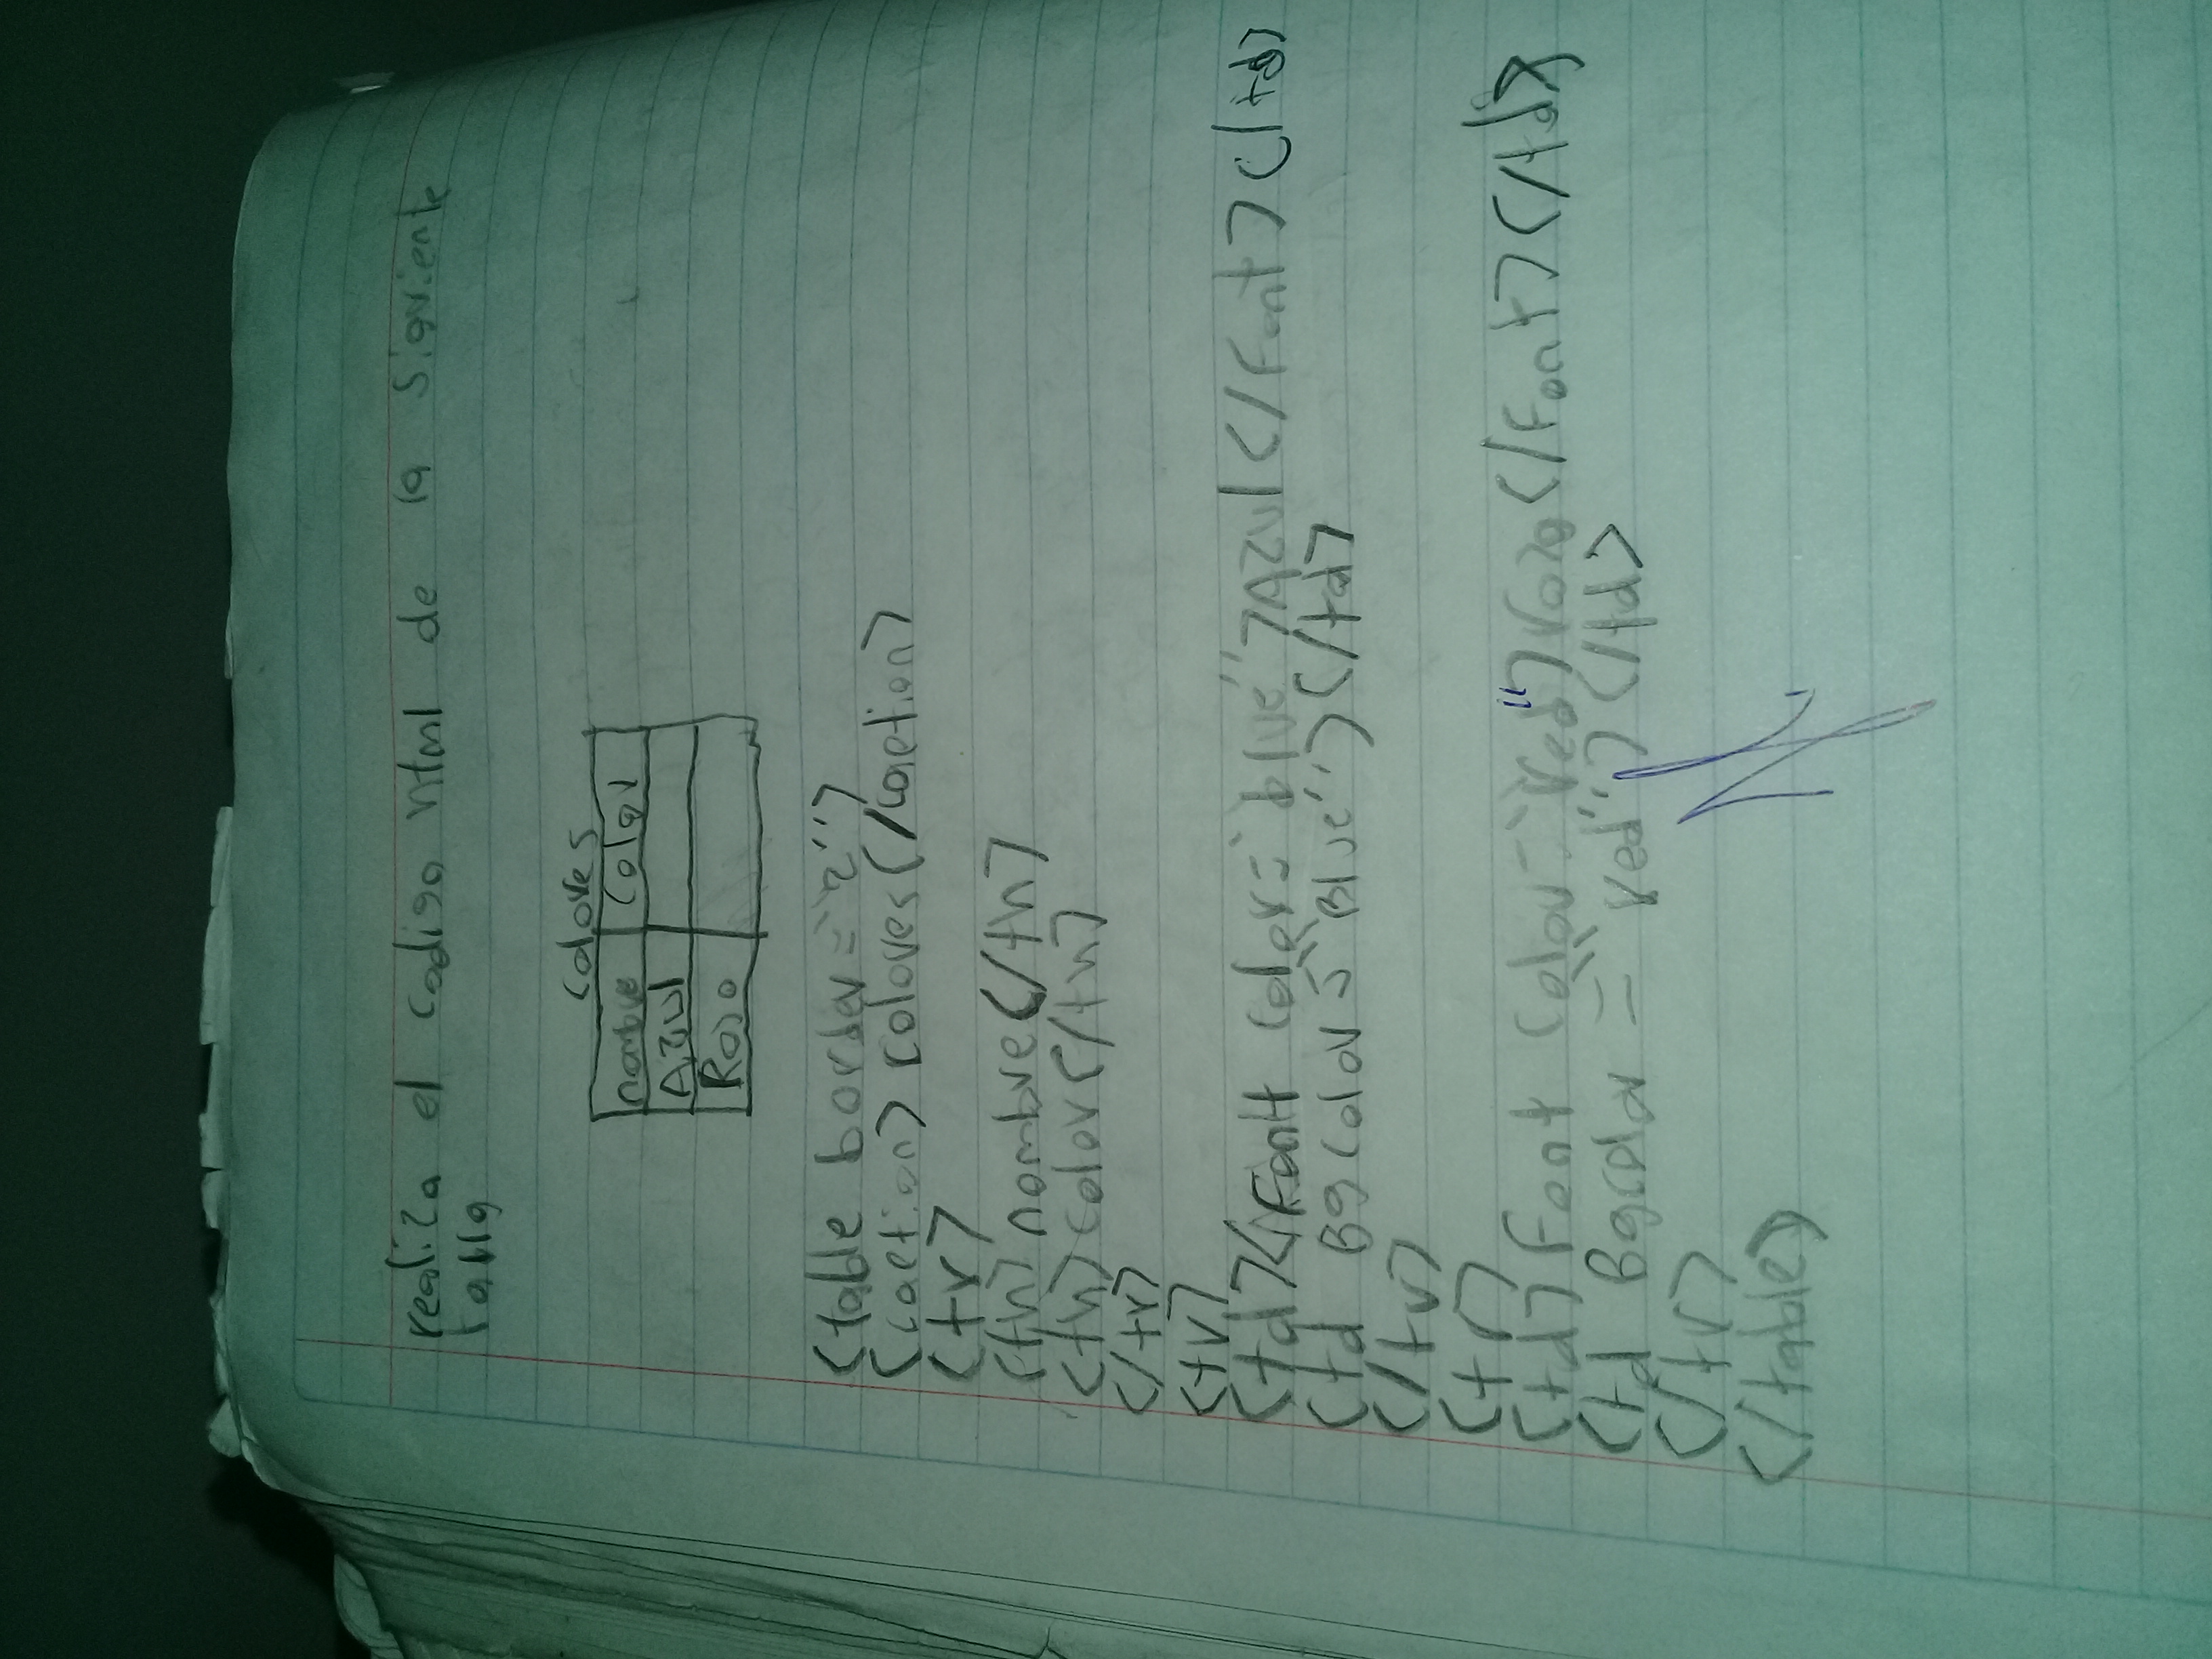 realiza el codigo html de la siguiente
tabla
colores
nombre color
Azul
Rojo
<table border="2">
<caption> colores </caption>
<tr>
<th> nombre </th>
<th> color </th>
</tr>
<tr>
<td><Font color="blue">Azul</Font></td>
<td Bgcolor="Blue"></td>
</tr>
<tr>
<td> Font color="red">rojo</Font></td>
<td Bgcolor="red"></td>
</tr>
</table>